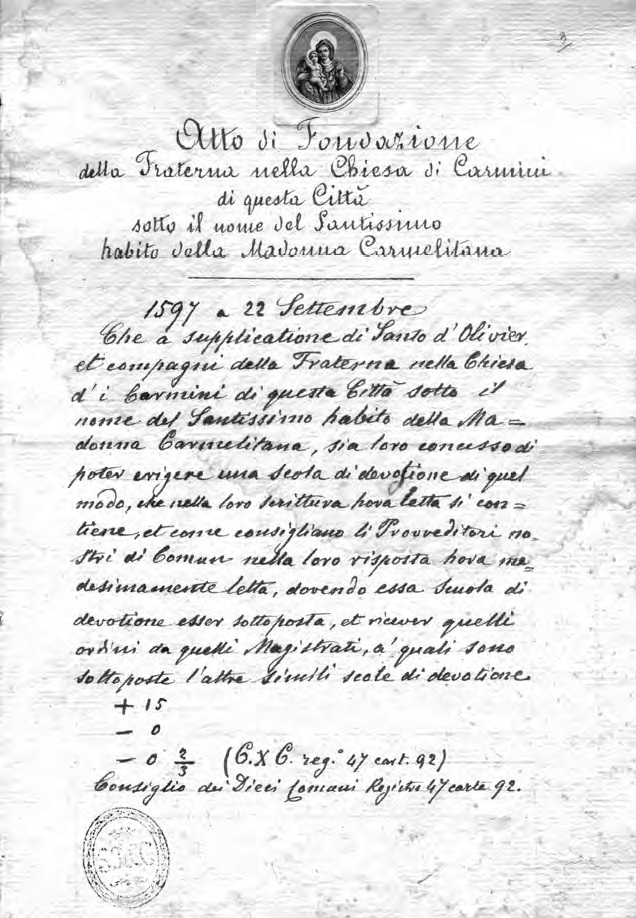 3
Atto di Fondazione
della Fraterna nella Chiesa di Carmini
di questa Città
sotto il nome del Santissimo
habito della Madonna Carmelitana
1597 a 22 Settembre
Che a supplicatione di Santo d'Olivier,
et compagni della Fraterna nella Chiesa
d'i Carmini di questa Città sotto il
nome del Santissimo habito della Ma=
donna Carmelitana, sia loro concesso di
poter erigere una scola di devotione di quel
modo, che nella loro scrittura hora letta si con=
tiene, et come consigliano li Provveditori no=
stri di Comun nella loro risposta hora me=
desimamente letta, dovendo essa scuola di
devotione esser sottoposta, et ricever quelli
ordini da quelli Magistrati, a' quali sono
sottoposte l'altre simili scole di devotione
+ 15
— 0
— 0 2/3 (C. X C. reg.° 47 cart. 92)
Consiglio dei Dieci Comuni Registro 47 carte 92.